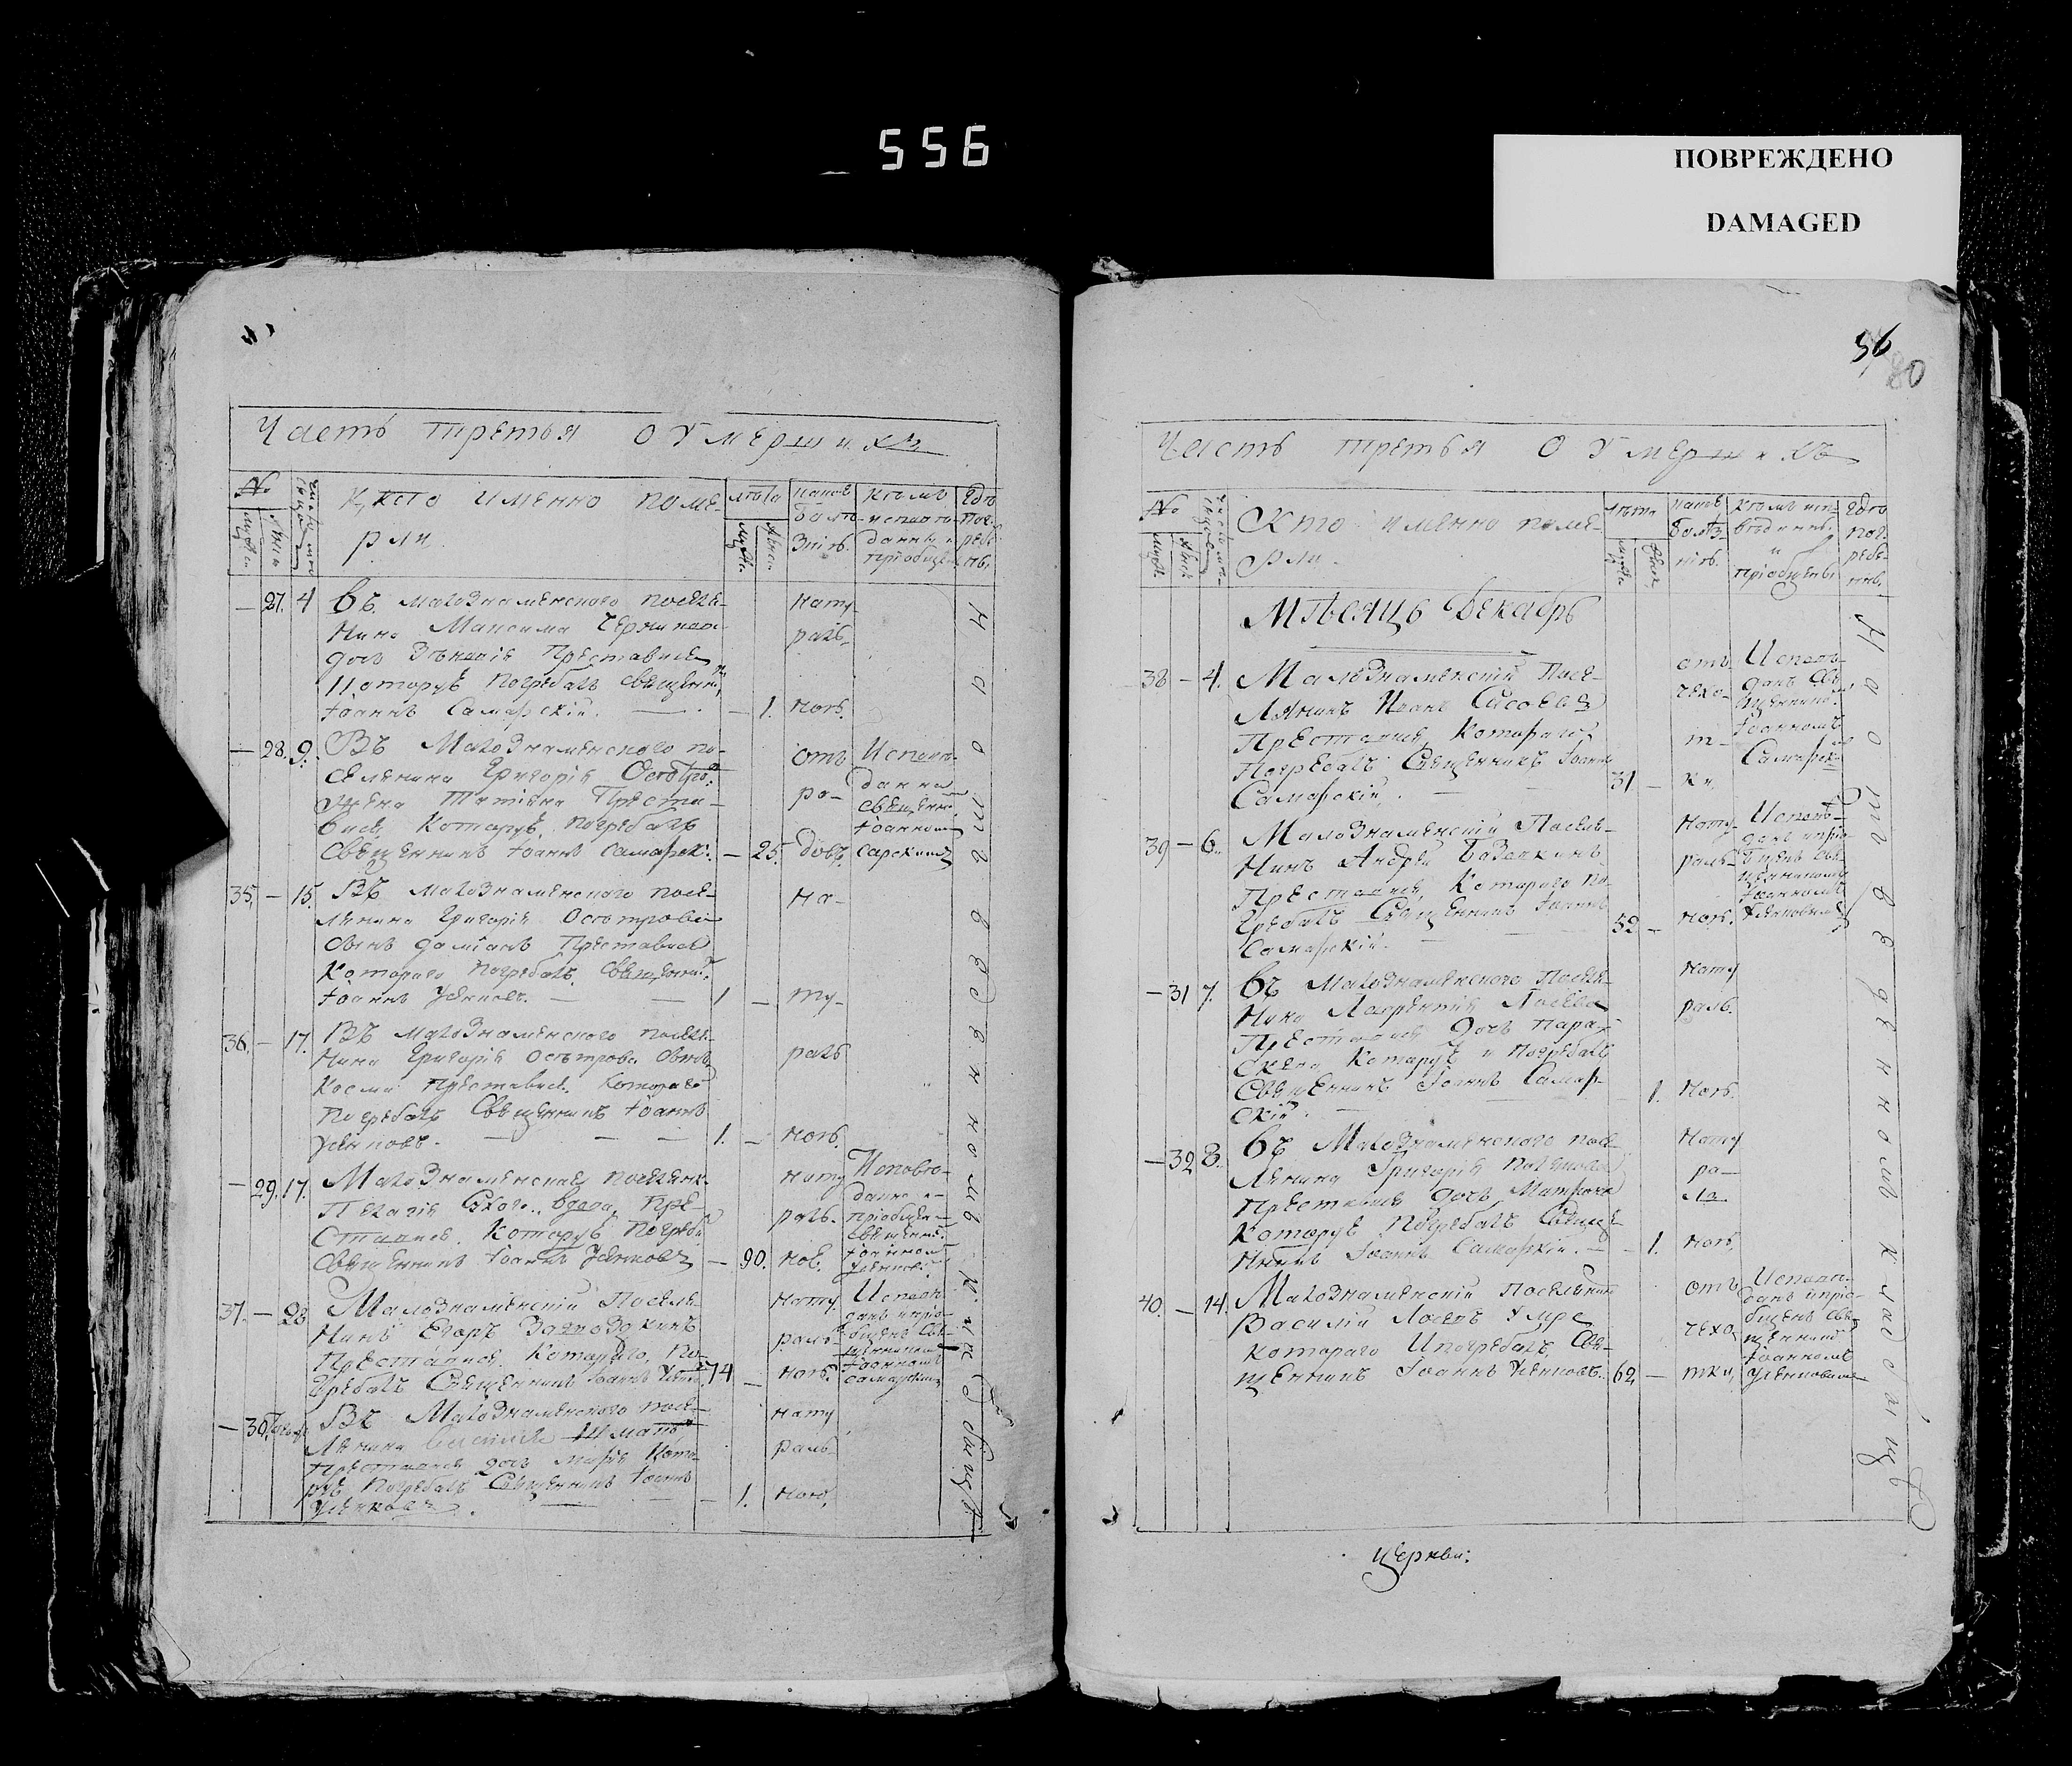 556
ПОВРЕЖДЕНО
DAMAGED
56
80
Часть третья О Умершихъ
№
Кто именно поме-
рли.
лѣта
Какою
болѣ-
знію.
Кѣмъ
исповѣ-
даны и
пріобще
Гдѣ
погребе-
ны.
— 27. 4
Въ Малознаменского поселя-
нина Максима
дочь Преставися
Которую погребалъ священник
Іоаннъ Самарскій. — 1.
нату-
раль-
ною.
— 28. 9.
Въ Малознаменского по-
селянина Григорія
жена Татіяна Преста-
вися, Которую погребалъ
Священникъ Іоаннъ Самарск: — 25.
отъ
ро-
довъ
Исповѣ-
данна
священн.
Іоанном
35. — 15.
Въ Малознаменского посе-
лянина Григорія Осетрова
сынъ Даміанъ Преставися
Которого погребалъ священни:
Іоаннъ Усенковъ. — 1 —
на-
ту-
36. — 17.
Въ Малознаменского поселя-
нина Григорія Осетрова сынъ
Косма Преставися. Которого
Погребалъ Священникъ Іоаннъ
Усенковъ. — 1. —
раль
ною.
— 29. 17.
Малознаменская поселянк.
Пелагія вдова, Пре-
ставися. Которую погреба
Священникъ Іоаннъ Усенковъ — 90.
нату
раль.
ною.
Исповѣ-
данна и
пріобщен-
священн.
Іоанном
37. — 23
Малознаменскій Поселя-
нинъ Егоръ
Преставися. Которого, по-
гребалъ Священникъ Іоаннъ 74 —
нату.
раль-
ною.
Исповѣ
данъ и пріо-
бщенъ свя-
щенником
Іоанномъ
Самарским
— 30.
Въ Малознаменского посе-
лянина
Преставися дочь Марія Кото-
рую Погребалъ Священникъ Іоаннъ
Усенковъ. — 1.
нату
раль
ною.
На отведенномъ кладбищѣ
Часть третья О Умершихъ
№
Кто именно поме-
рли.
лѣта
Какою
болѣз-
нію.
Кѣмъ исп-
вѣданны
и
пріобщены
Гдѣ
пог-
ребе-
ны.
Мѣсяцъ Декабрь
38 — 4.
Малознаменскій Посе-
лянинъ Иванъ Сисоевъ
Преставися, Которого
Погребалъ Священникъ Іоаннъ
Самарскій. 31 —
отъ
чехо-
т-
ки,
Исповѣ-
данъ Свя-
щенником
Іоанномъ
Самарск
39 — 6.
Малознаменскій Поселя-
нинъ Андрей
Преставися, Которого по-
гребалъ Священникъ Іоаннъ
Самарскій. 52 —
нату-
раль-
ною.
Исповѣ-
данъ и пріо-
бщенъ свя-
щенникомъ
Іоанномъ
Усенковымъ
— 31 7.
Въ Малознаменского Поселя-
нина Лаврентія Лосева
Преставися дочь Пара-
скева Которую и погребалъ
Священникъ Іоаннъ Самар-
скій. 1.
нату
раль.
ною.
— 32 8.
Въ Малознаменского посе-
лянина Григорія
Преставися дочь Матрона
Которую Погребалъ Священ-
никъ Іоаннъ Самарскій. — 1.
нату
ра-
ль
ною,
40. — 14.
Малознаменскій Поселянин
Василій Лосевъ Умре
Которого и погребалъ, Свя-
щенникъ Іоаннъ Усенковъ. 62 —
отъ
чехо
тки,
Исповѣ-
данъ и пріо-
бщенъ свя-
щенником
Іоанномъ
Усенковымъ
На отведенномъ кладбищѣ
Церкви: